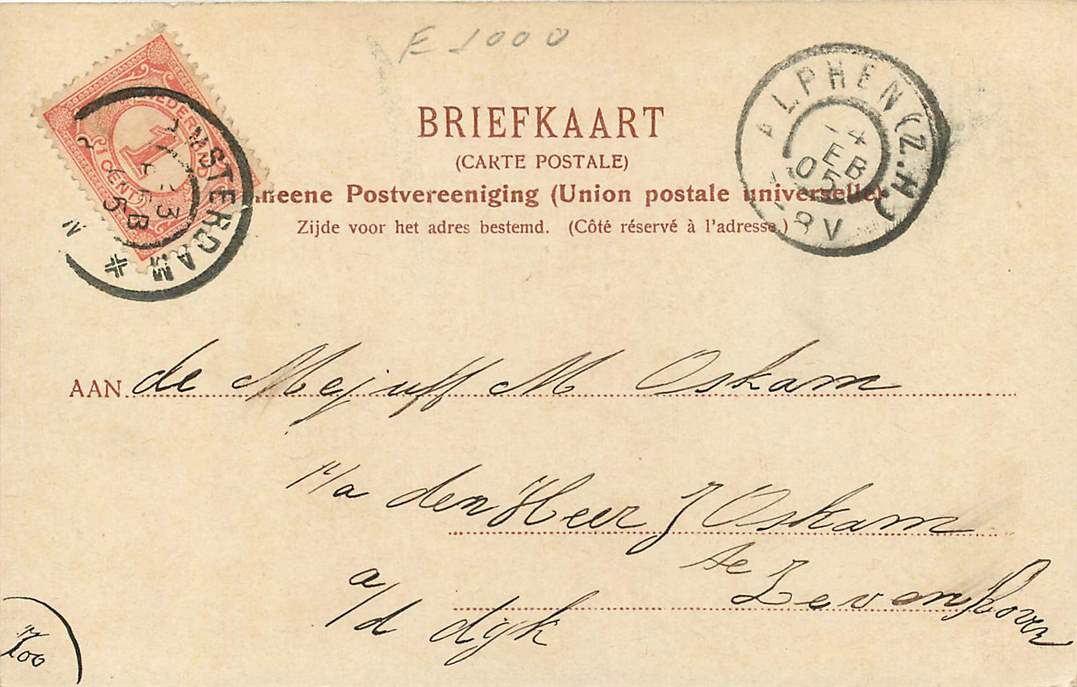 E 1000
NEDERLAND
1
CENT
AMSTERDAM
3 FEB
5
N
ALPHEN (Z.H.)
4 FEB 05
8V
BRIEFKAART
(CARTE POSTALE)
meene Postvereeniging (Union postale universelle)
Zijde voor het adres bestemd. (Côté réservé à l'adresse.)
AAN de Mejuff M Oskam
p/a den Heer J Oskam
te Zevenhoven
a/d dijk
100